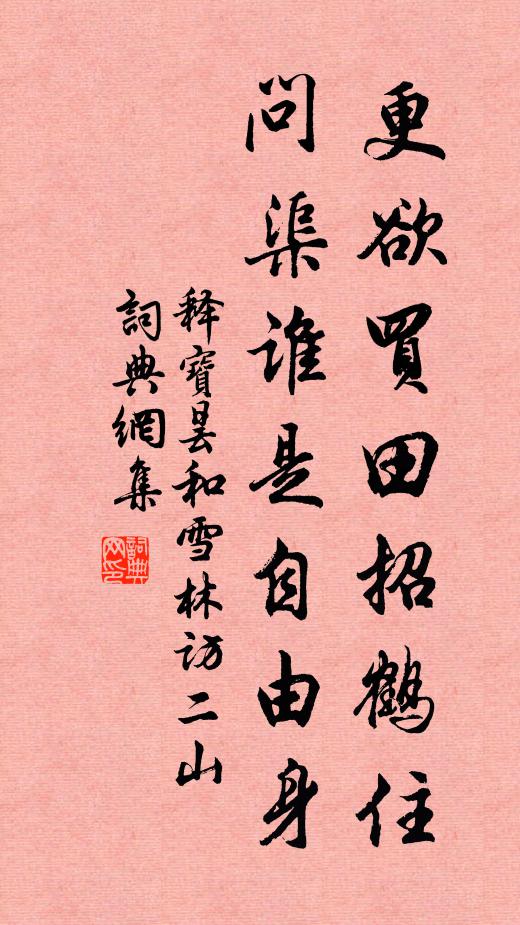 更欲買田招鶴住
問渠誰是自由身
释寶曇和雪林訪二山
詞典網集
詞典网印